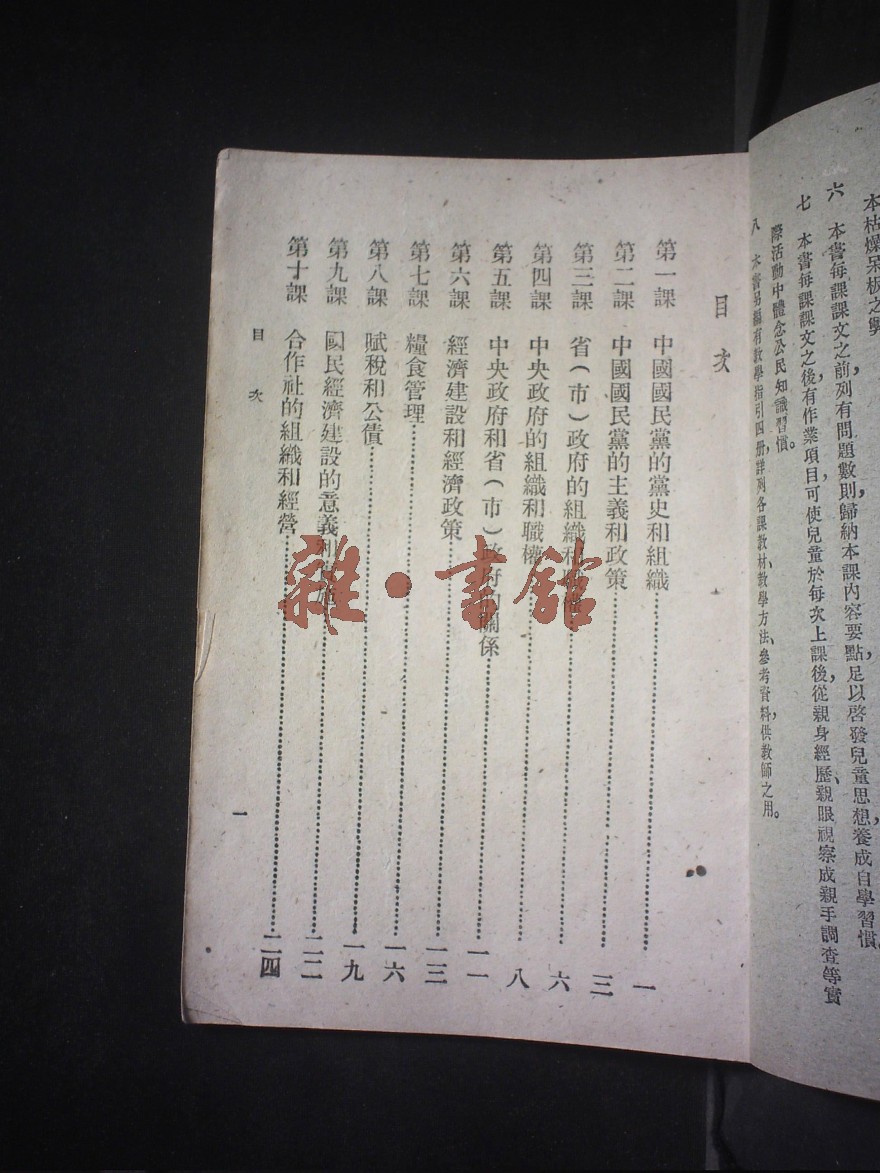 本枯燥呆板之弊
六　本書每課課文之前，列有問題數則，歸納本課內容要點，足以啓發兒童思想，養成自學習慣。
七　本書每課課文之後，有作業項目，可使兒童於每次上課後，從親身經歷、親眼視察或親手調查等實
際活動中，體念公民知識習慣。
八　本書另編有教學指引四册，詳列各課教材、教學方法、參考資料，供教師之用。
目次
第一課　中國國民黨的黨史和組織……一
第二課　中國國民黨的主義和政策……三
第三課　省（市）政府的組織和職權……六
第四課　中央政府的組織和職權……八
第五課　中央政府和省（市）政府的關係……一一
第六課　經濟建設和經濟政策……一三
第七課　糧食管理……一六
第八課　賦稅和公債……一九
第九課　國民經濟建設的意義和……二二
第十課　合作社的組織和經營……二四
目次
一
雜·書館